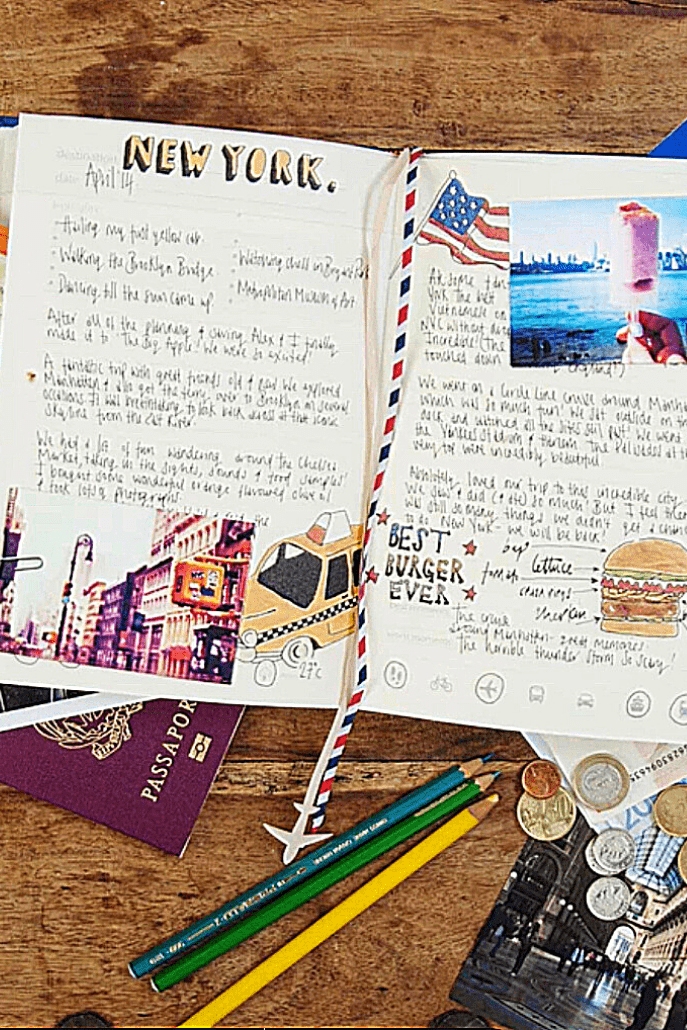 destination
NEW YORK.
date April '14
Hailing my first yellow cab
Walking the Brooklyn Bridge
Dancing till the sun came up
Watching chess in Bryant Park
Metropolitan Museum of Art
After all of the planning & saving Alex & I finally
made it to "The Big Apple! We were so excited.
A fantastic trip with great friends old & new. We explored
Manhattan & also got the ferry over to Brooklyn on several
occasions. It was breathtaking to look back across at that iconic
skyline from the East River.
We had a lot of fun wandering around the Chelsea
Market, taking in the sights, sounds & food samples!
I bought some wonderful orange flavoured olive oil
& took lots of photographs.
27°C
York. The best
Vietnamese
NYC without
Incredible! (The
touched down
We went on a Circle Line cruise around
which was so much fun! We sat outside on the
deck and watched all the sites sail past! We went
the Yankees stadium & Harlem. The Palisades at the
were incredibly beautiful.
Absolutely loved our trip to this incredible city
We saw & did (& ate) so much! But I feel there
was still so many things we didn't get a chance
to do. New York - we will be back!
BEST
BURGER
EVER
lettuce
tomato
best moments
The cruise
around Manhattan - great memories!
worst moments
The horrible thunder storm so scary!
PASSAPOR